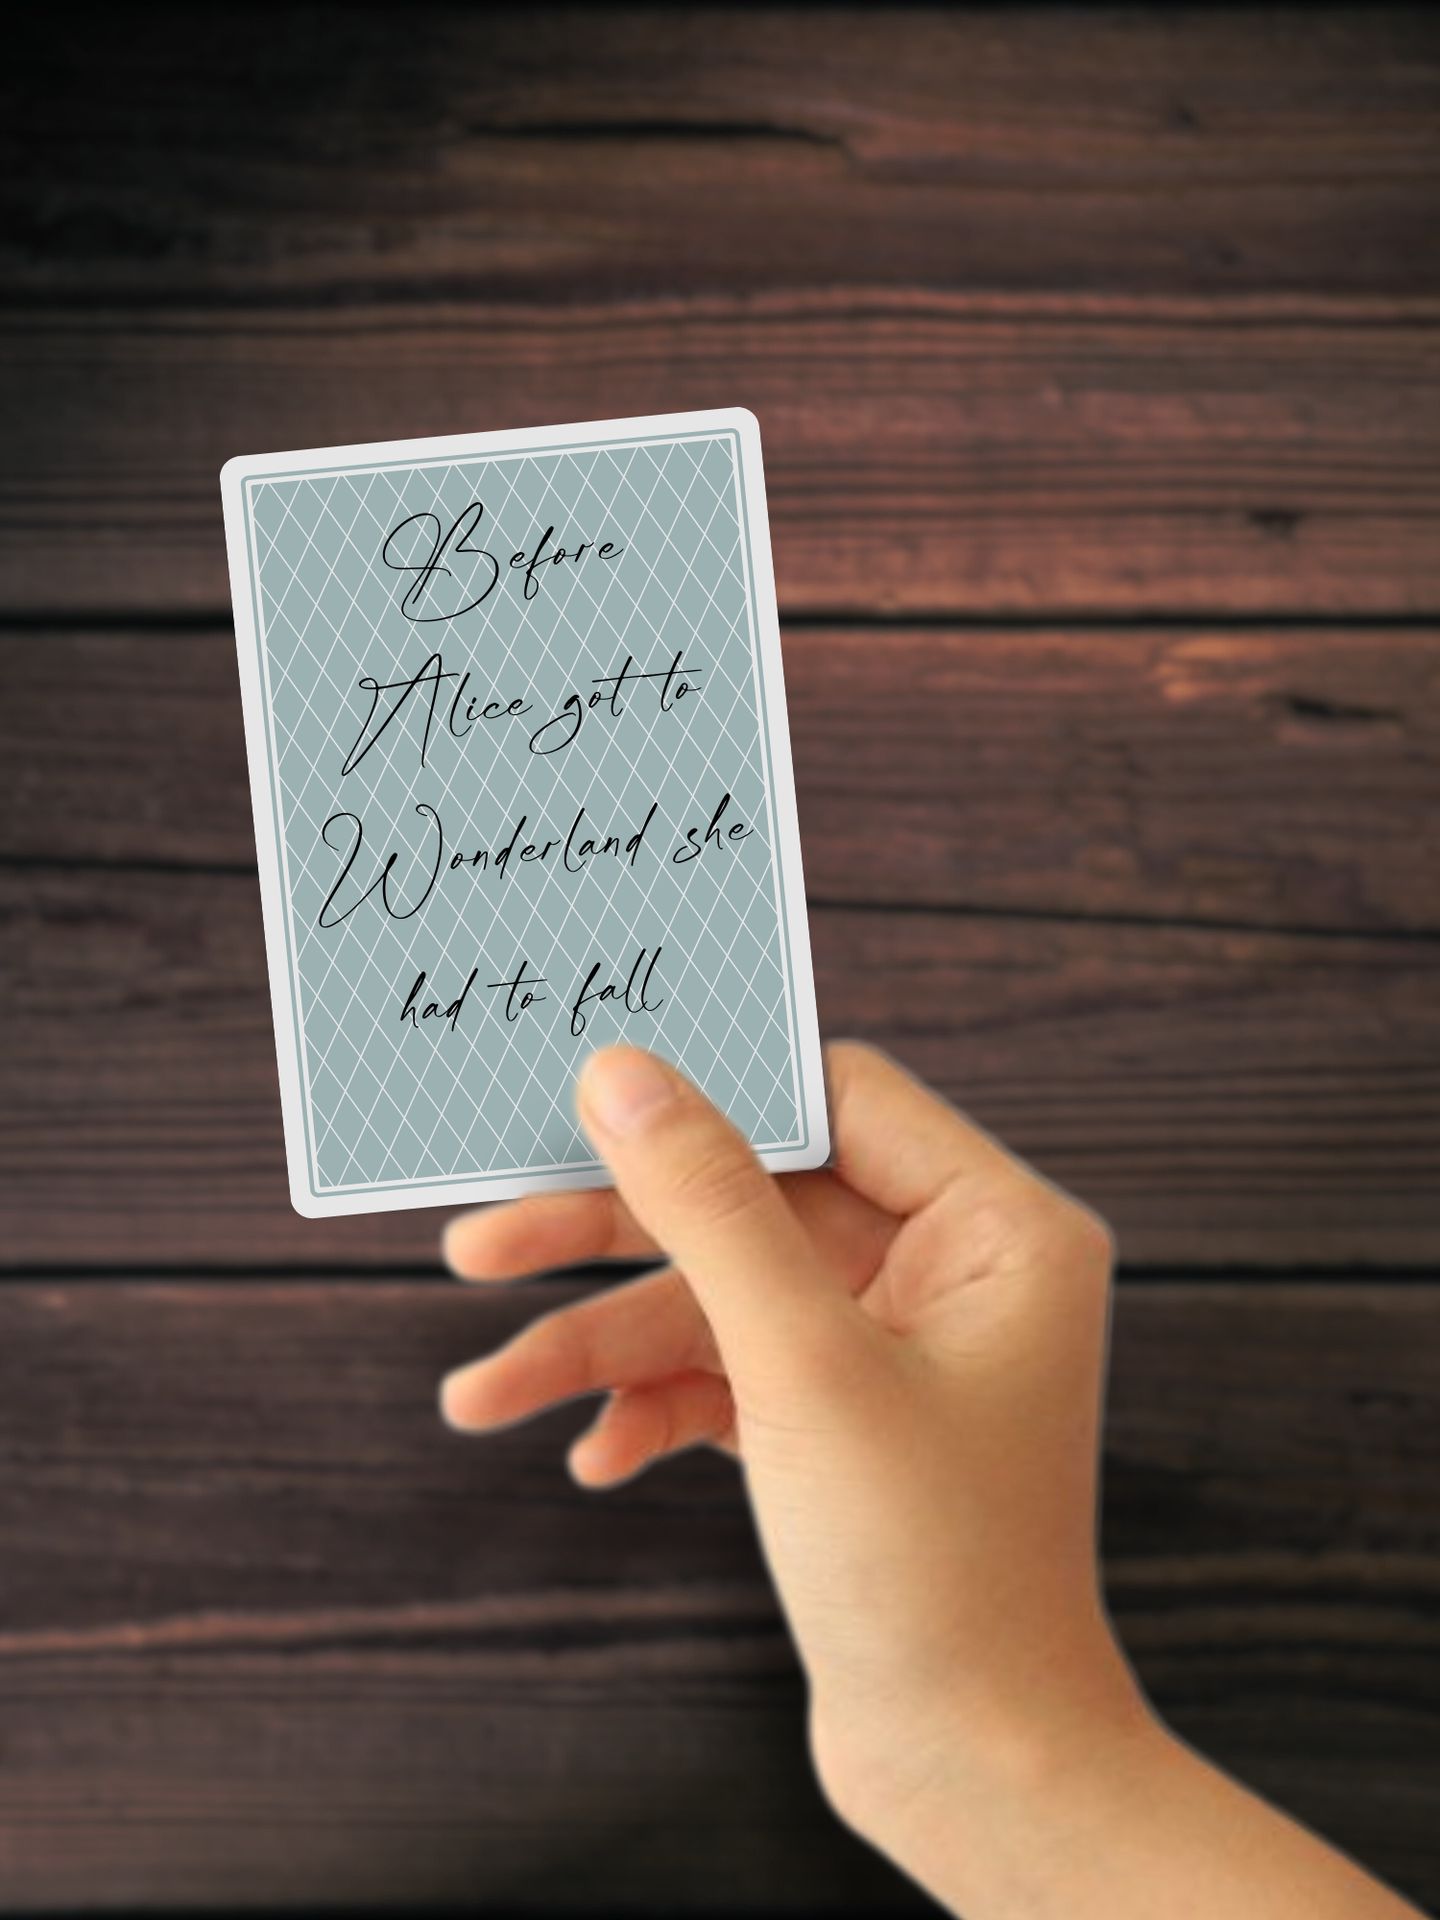 Before
Alice got to
Wonderland she
had to fall